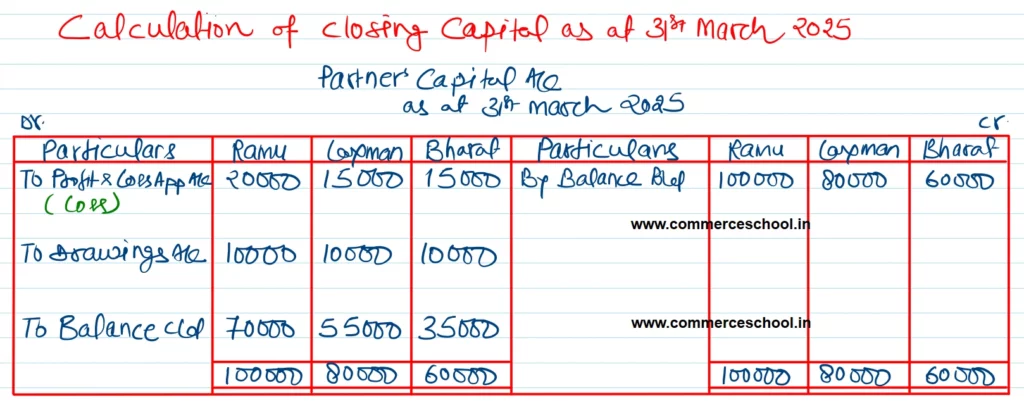 Calculation of closing Capital as at 31st March 2025
Partner's Capital A/c
as at 31st march 2025
Dr. Cr.
Particulars Ramu Laxman Bharat Particulars Ramu Laxman Bharat
To Profit & Loss App A/c 20000 15000 15000 By Balance B/d 100000 80000 60000
(Loss)
www.commerceschool.in
To Drawings A/c 10000 10000 10000
To Balance c/d 70000 55000 35000 www.commerceschool.in
100000 80000 60000 100000 80000 60000